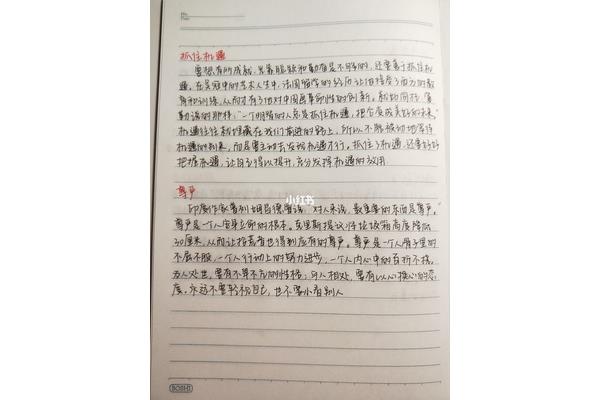 No.
Date
抓住机遇
要想有所成就,只靠脚踏和勤奋是不够的,还要善于抓住机
遇。在吴冠中的艺术人生中,法国留学的经历让他接受了西方的教
育和训练,从而才有了他对中国画革命性的创新。就如同孙
勤说的那样:"一个明智的人总是抓住机遇,把它变成美好的未来。"
机遇往往就埋藏在我们前进的路上,所以不能被动地等待
机遇的到来,而是要主动去发现机遇才行。抓住了机遇,还要好好
把握机遇,让自己得以提升,充分发挥机遇的效用
尊严
印度作家普列姆昌德曾说:对人来说,最重要的东西是尊严。
尊严是一个人安身立命的根本。克里斯提议将垃圾箱高度降低
30厘米,从而让拾荒者也得到应有的尊严。尊严是一个人骨子里的
不屈不服,一个人行动上的努力进步,一个人内心中的百折不挠。
为人处世,要有不卑不亢的性格;与人相处,要有以心换心的态
度。永远不要轻视自己,也不要小看别人
小红书
BOSHI